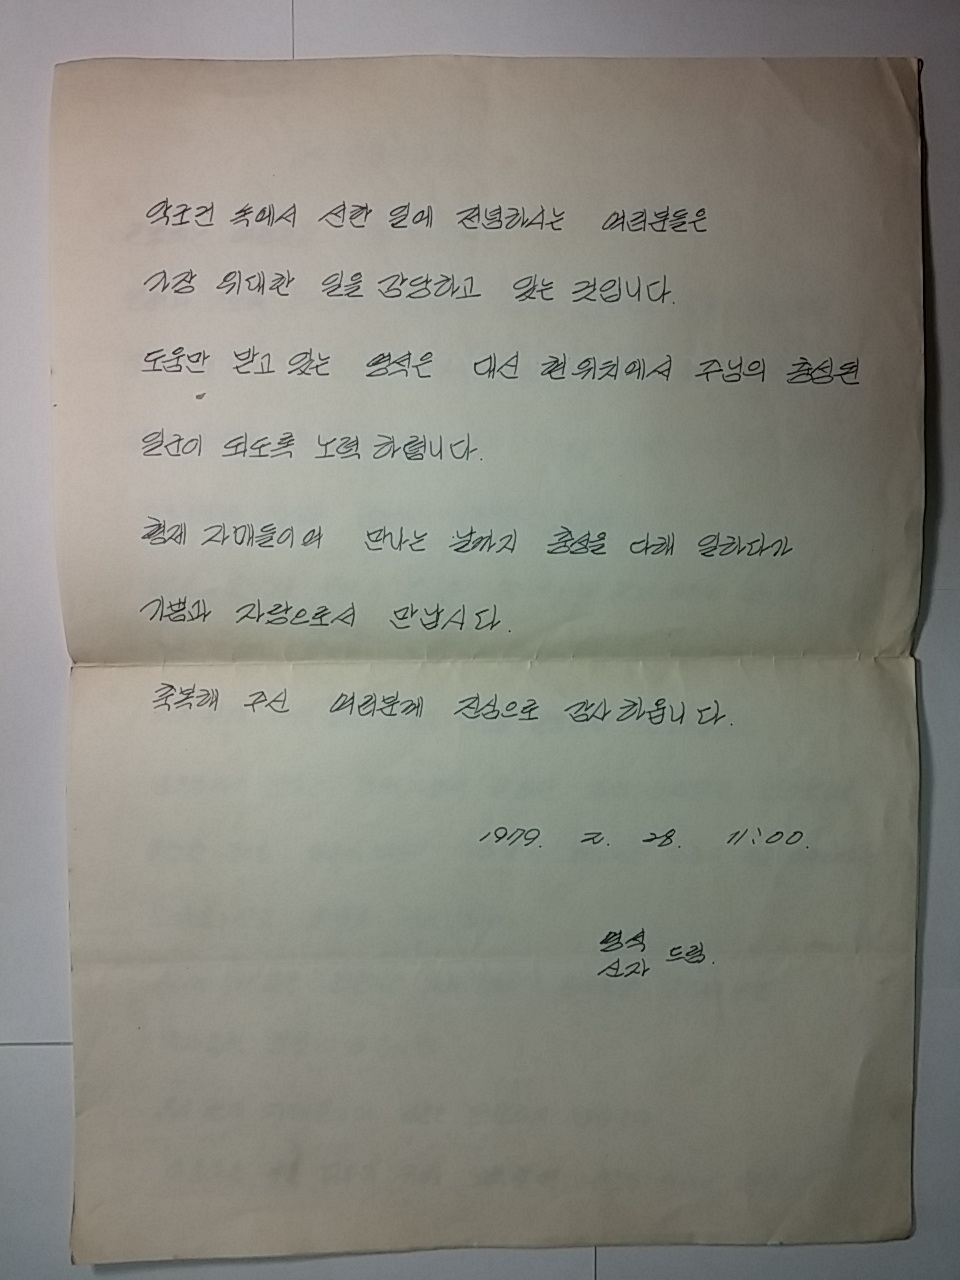 악조건 속에서 선한 일에 전념하시는 여러분들은
가장 위대한 일을 감당하고 있는 것입니다.
도움만 받고 있는 영석은 대신 현 위치에서 주님의 충성된
일군이 되도록 노력 하렵니다.
형제 자매들이여 만나는 날까지 충성을 다해 일하다가
기쁨과 자랑으로서 만납시다.
축복해 주신 여러분께 진심으로 감사 하옵니다.
1979. 2. 28. 11:00.
영석
신자 드림.